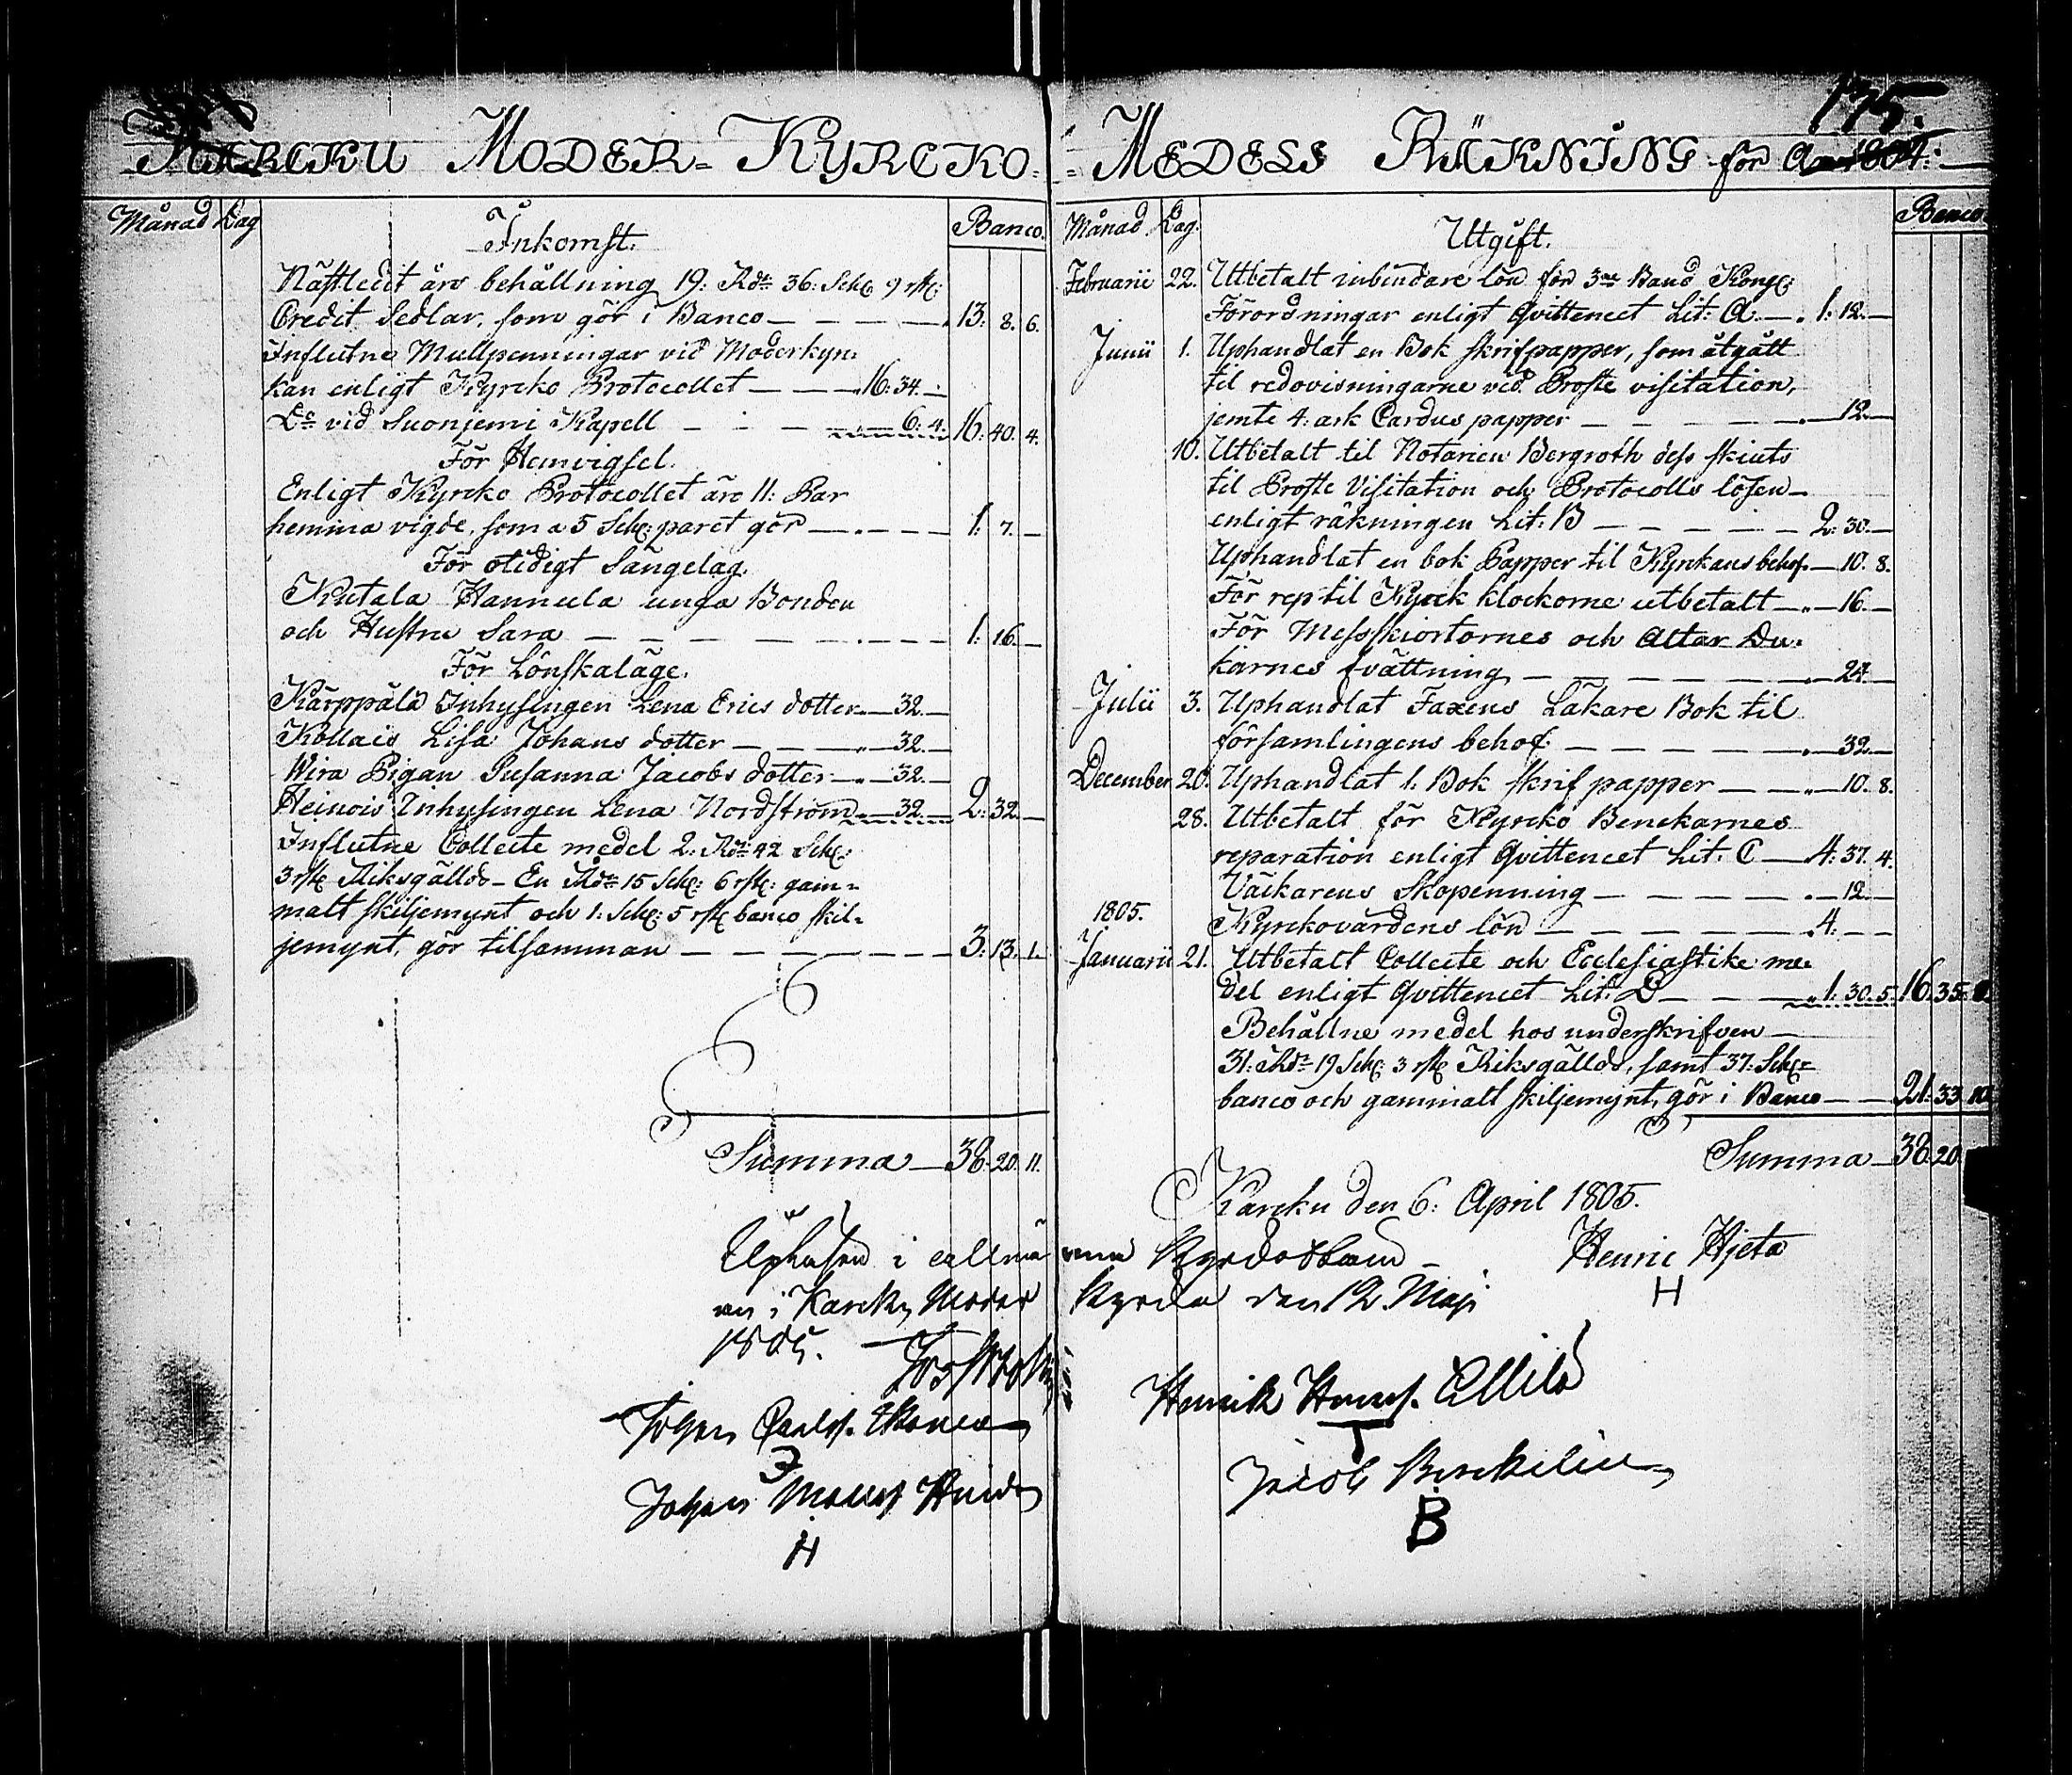 175.
KARCKU MODER-KYRCKO-MEDELS RÄKNING för A:o 1804.
Månad Dag
Inkomst.
Banco.
Nästledit års behållning 19: Rdr 36: Sch: 9 rst:
Credit Sedlar, som gör i Banco — — — 13: 8. 6.
Influtne Mullpenningar vid Moderkyrc-
kan enligt Kyrcko Protocollet — — — 16: 34. —
Do vid Suonjemi Kapell — — — 6: 4. 16: 40. 4.
För Hemvigsel.
Enligt Kyrcko Protocollet äro 11: Par
hemma vigde, som a 5 Sch: paret gör — — — 1: 7. —
För otidigt Sängelag.
Kutala Hannula unga Bonden
och Hustru Sara — — — — — 1: 16. —
För Lönskaläge.
Kärppälä Inhysingen Lena Erics dotter — 32. —
Kollais Lisa Johans dotter — — — 32. —
Wira Pigan Susanna Jacobs dotter — 32. —
Heinois Inhysingen Lena Nordström — 32. — 2: 32. —
Influtne Collecte medel 2: Rdr 42 Sch:
3 rst: Riksgällds — En Rdr 15 Sch: 6 rst: gam-
malt skiljemynt och 1: Sch: 5 rst: banco skil-
jemynt, gör tilsamman — — — — 3: 13. 1.
Summa — 38. 20. 11.
Månad Dag.
Utgift.
Banco.
Februarii 22. Utbetalt inbindare lön för 3ne Band Kongl:
Förordningar enligt Qvittencet Lit: A. — 1: 12. —
Junii 1. Uphandlat en Bok skrifpapper, som åtgått
til redovisningarne vid Proste visitation,
jemte 4: ark Cardus papper — — — — 12. —
10. Utbetalt til Notarien Bergroth dess skiuts
til Proste Visitation och Protocolls lösen —
enligt räkningen Lit: B — — — — 2: 30. —
Uphandlat en bok Papper til Kyrkans behof. — 10. 8.
För rep til Kyrck klockorne utbetalt — — 16. —
För Messskiortornes och Altar Du-
karnes tvättning — — — — — 24. —
Julii 3. Uphandlat Faxens Läkare Bok til
församlingens behof. — — — — — 32. —
December 20. Uphandlat 1: Bok skrif papper — — — 10. 8.
28. Utbetalt för Kyrcko Benckarnes
reparation enligt Qvittencet Lit: C — 4: 37. 4.
Väckarens Skopenning — — — — 12. —
1805.
Kyrckovärdens lön — — — — — 4: — —
Januarii 21. Utbetalt Collecte och Ecclesiastike me-
del enligt Qvittencet Lit: D — — — 1: 30. 5. 16. 35.
Behållne medel hos underskrifven —
31: Rdr 19 Sch: 3 rst: Riksgällds, samt 37: Sch:
banco och gammalt skiljemynt, gör i Banco — — 21: 33 10.
Summa — 38. 20.
Karcku den 6: April 1805.
Henric Hjeta
H
Upläsen i allmänna Kyrckostäm-
an i Karcku Moder Kyrcka den 12 Maji
1805.
Henrik
T
Johan
Johan
H
Jacob
B